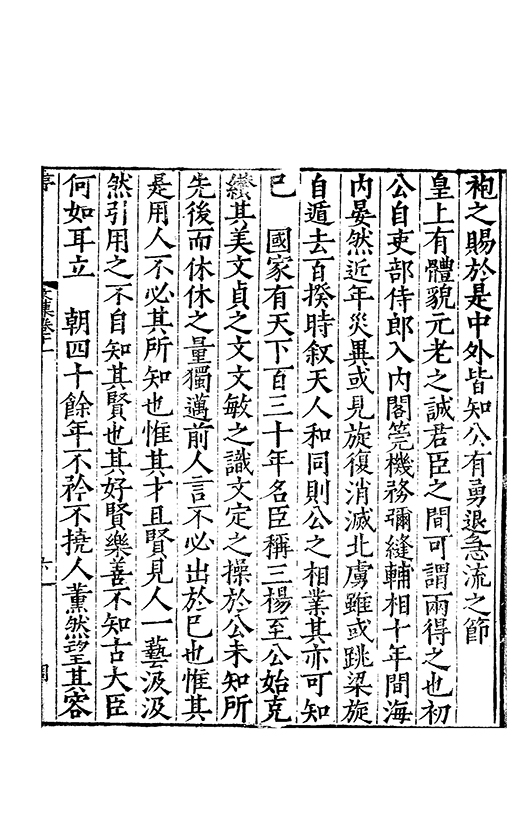 袍之賜於是中外皆知公有勇退急流之節
皇上有體貌元老之誠君臣之間可謂兩得之也初
公自吏部侍郎入內閣筦機務彌縫輔相十年間海
內晏然近年災異或見旋復消滅北虜雖或跳梁旋
自遁去百揆時叙天人和同則公之相業其亦可知
已　國家有天下百三十年名臣稱三楊至公始克
纘其美文貞之文文敏之識文定之操於公未知所
先後而休休之量獨邁前人言不必出於已也惟其
是用人不必其所知也惟其才且賢見人一藝汲汲
然引用之不自知其賢也其好賢樂善不知古大臣
何如耳立　朝四十餘年不矜不撓人薰然望其容
文集卷十一
六